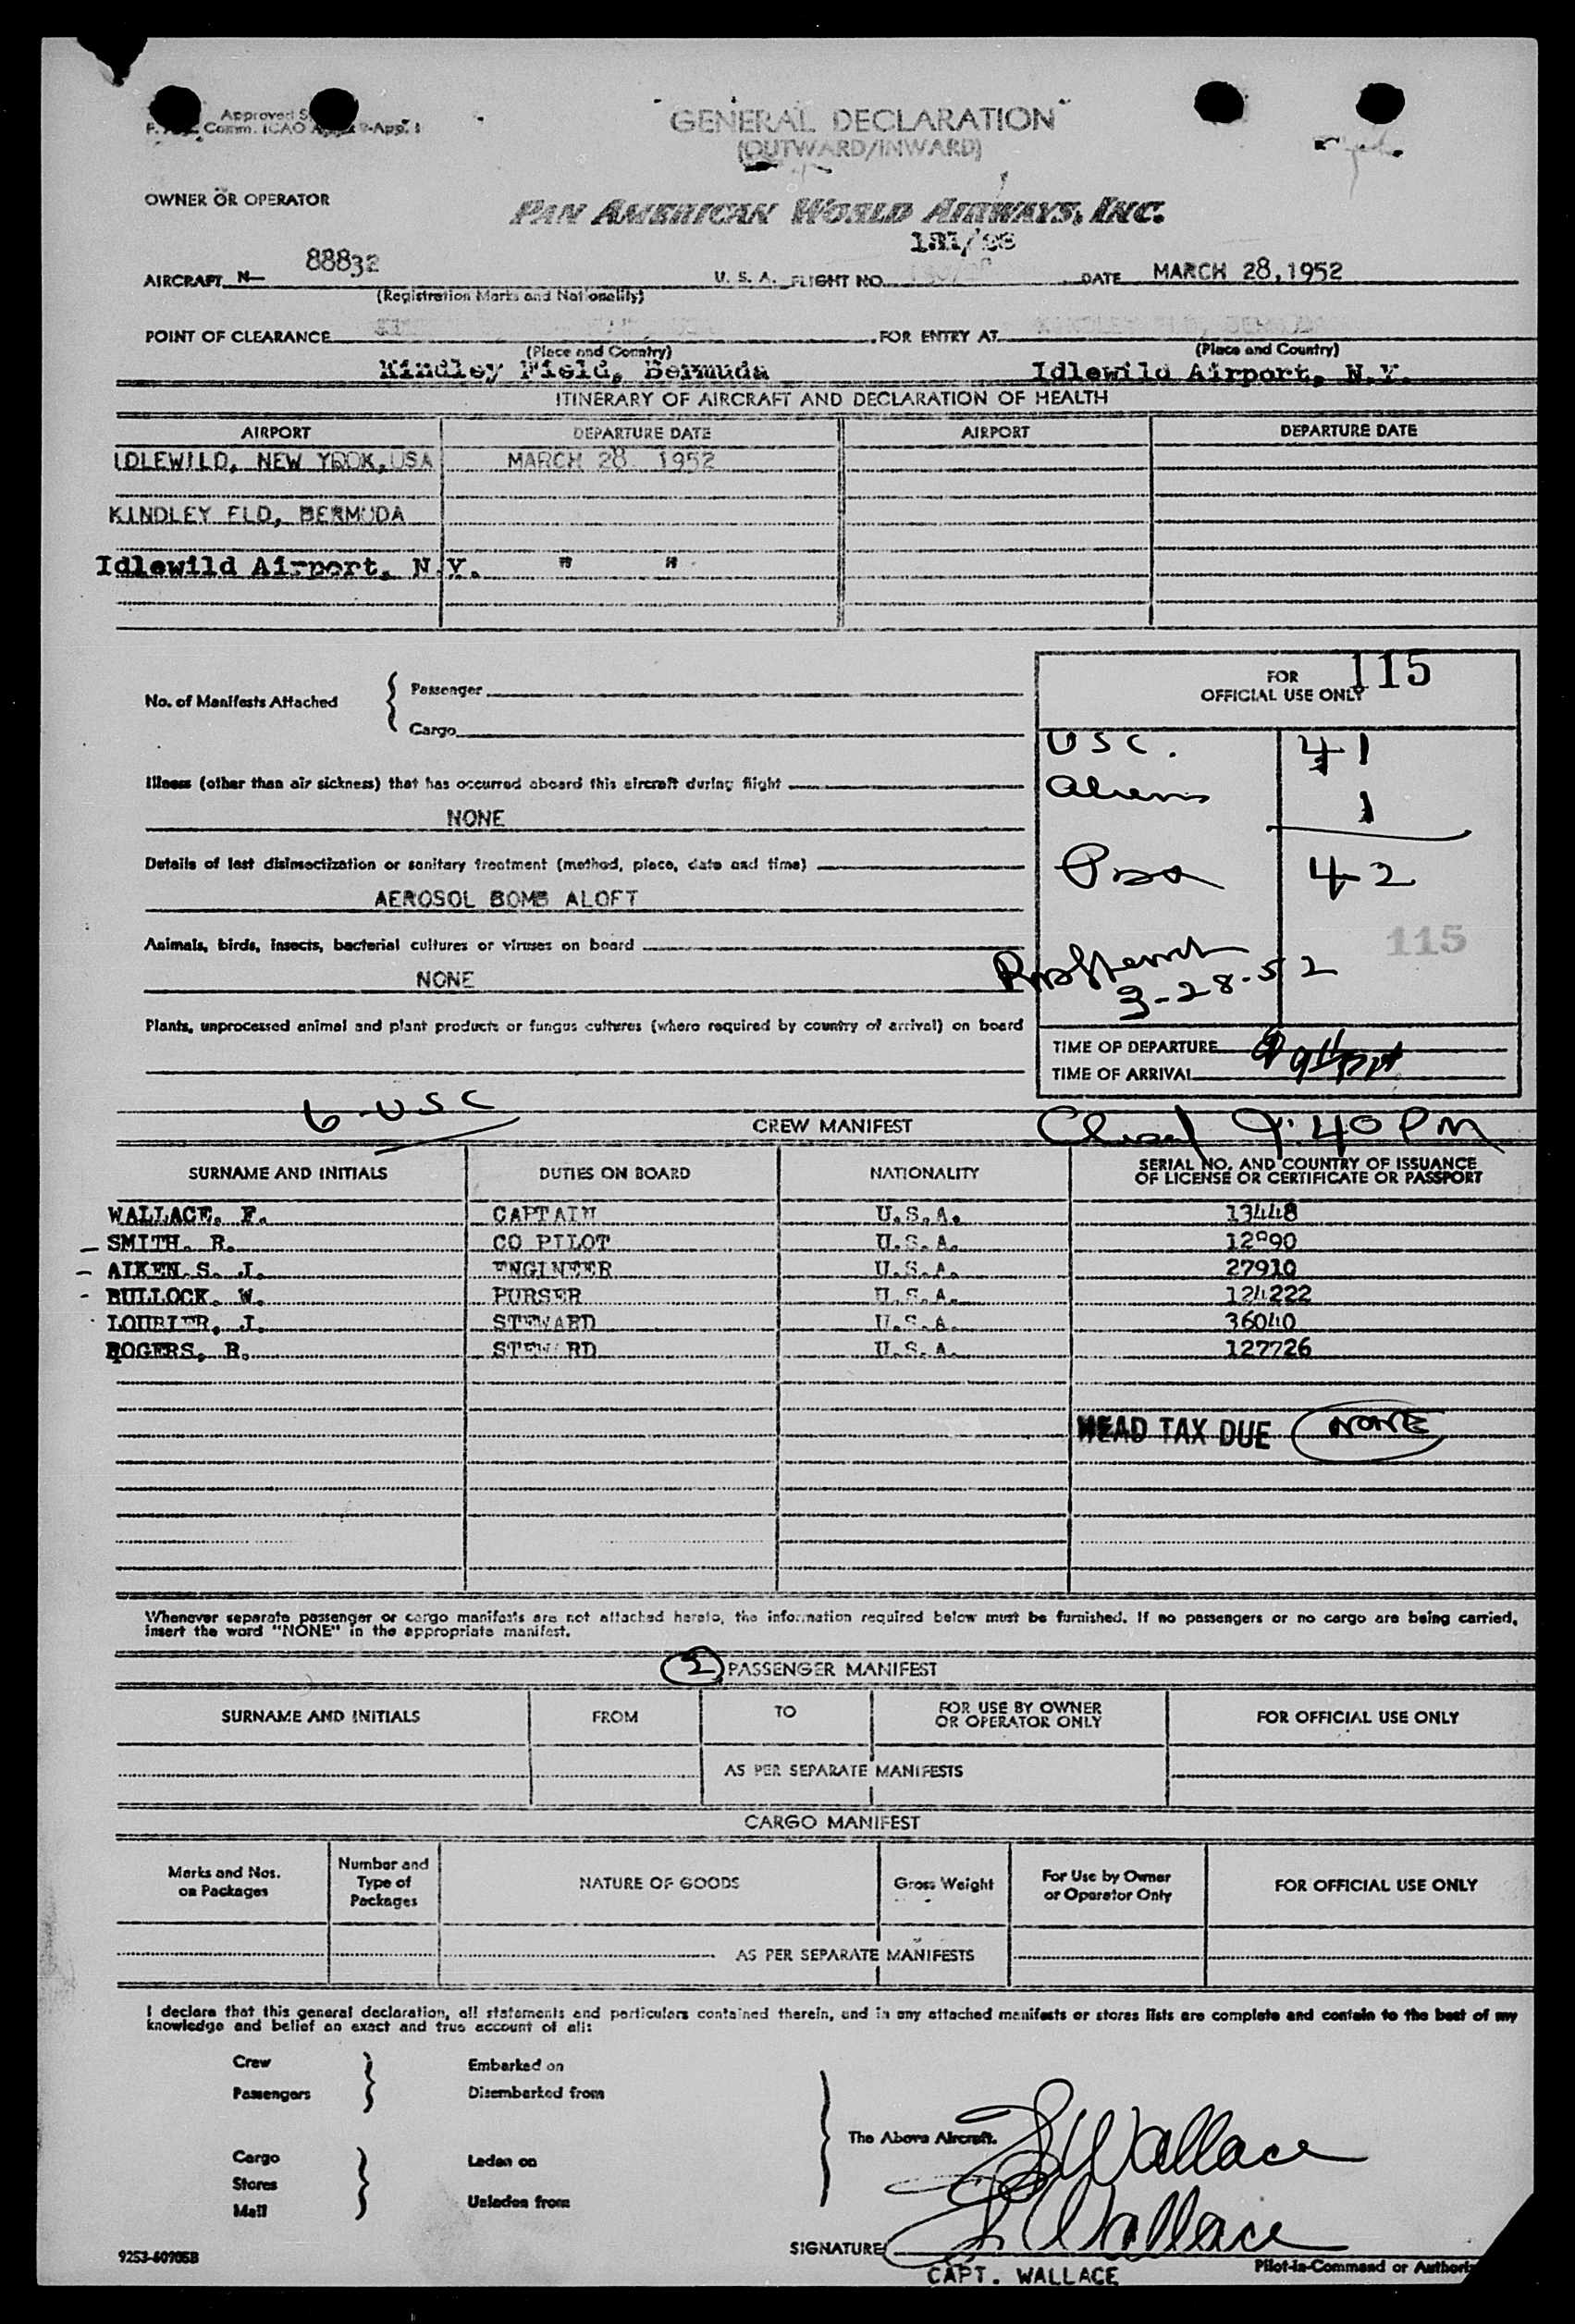 Approved
Comm. ICAO 9-App. 1
GENERAL DECLARATION
(OUTWARD/INWARD)
OWNER OR OPERATOR
PAN AMERICAN WORLD AIRWAYS, INC.
131/28
AIRCRAFT N- 88832 U. S. A. FLIGHT NO. DATE MARCH 28, 1952
(Registration Marks and Nationality)
POINT OF CLEARANCE FOR ENTRY AT KINDLEY FLD, BERMUDA
(Place and Country) (Place and Country)
Kindley Field, Bermuda Idlewild Airport, N.Y.
ITINERARY OF AIRCRAFT AND DECLARATION OF HEALTH
AIRPORT DEPARTURE DATE AIRPORT DEPARTURE DATE
IDLEWILD, NEW YROK, USA MARCH 28 1952
KINDLEY FLD, BERMUDA
Idlewild Airport, N.Y. " "
No. of Manifests Attached { Passenger
Cargo
FOR 115
OFFICIAL USE ONLY
USC. 41
Aliens 1
42
115
3-28-52
TIME OF DEPARTURE
TIME OF ARRIVAL
Illness (other than air sickness) that has occurred aboard this aircraft during flight
NONE
Details of last disinsectization or sanitary treatment (method, place, date and time)
AEROSOL BOMB ALOFT
Animals, birds, insects, bacterial cultures or viruses on board
NONE
Plants, unprocessed animal and plant products or fungus cultures (where required by country of arrival) on board
6-USC
CREW MANIFEST
9:40 PM
SURNAME AND INITIALS DUTIES ON BOARD NATIONALITY SERIAL NO. AND COUNTRY OF ISSUANCE
OF LICENSE OR CERTIFICATE OR PASSPORT
WALLACE. F. CAPTAIN U.S.A. 13448
SMITH. R. CO PILOT U.S.A. 12890
AIKEN S. J. ENGINEER U.S.A. 27910
BULLOCK. W. PURSER U.S.A. 124222
LOUBIER, J. STEWARD U.S.A. 36040
ROGERS, R. STEWARD U.S.A. 127726
HEAD TAX DUE NONE
Whenever separate passenger or cargo manifests are not attached hereto, the information required below must be furnished. If no passengers or no cargo are being carried,
insert the word "NONE" in the appropriate manifest.
2 PASSENGER MANIFEST
SURNAME AND INITIALS FROM TO FOR USE BY OWNER
OR OPERATOR ONLY FOR OFFICIAL USE ONLY
AS PER SEPARATE MANIFESTS
CARGO MANIFEST
Marks and Nos.
on Packages Number and
Type of
Packages NATURE OF GOODS Gross Weight For Use by Owner
or Operator Only FOR OFFICIAL USE ONLY
AS PER SEPARATE MANIFESTS
I declare that this general declaration, all statements and particulars contained therein, and in any attached manifests or stores lists are complete and contain to the best of my
knowledge and belief an exact and true account of all:
Crew Embarked on
Passengers Disembarked from
The Above Aircraft.
Cargo Laden on
Stores
Mail Unladen from
F Wallace
F Wallace
SIGNATURE
Pilot-in-Command or Authori
CAPT. WALLACE
9253-60905B